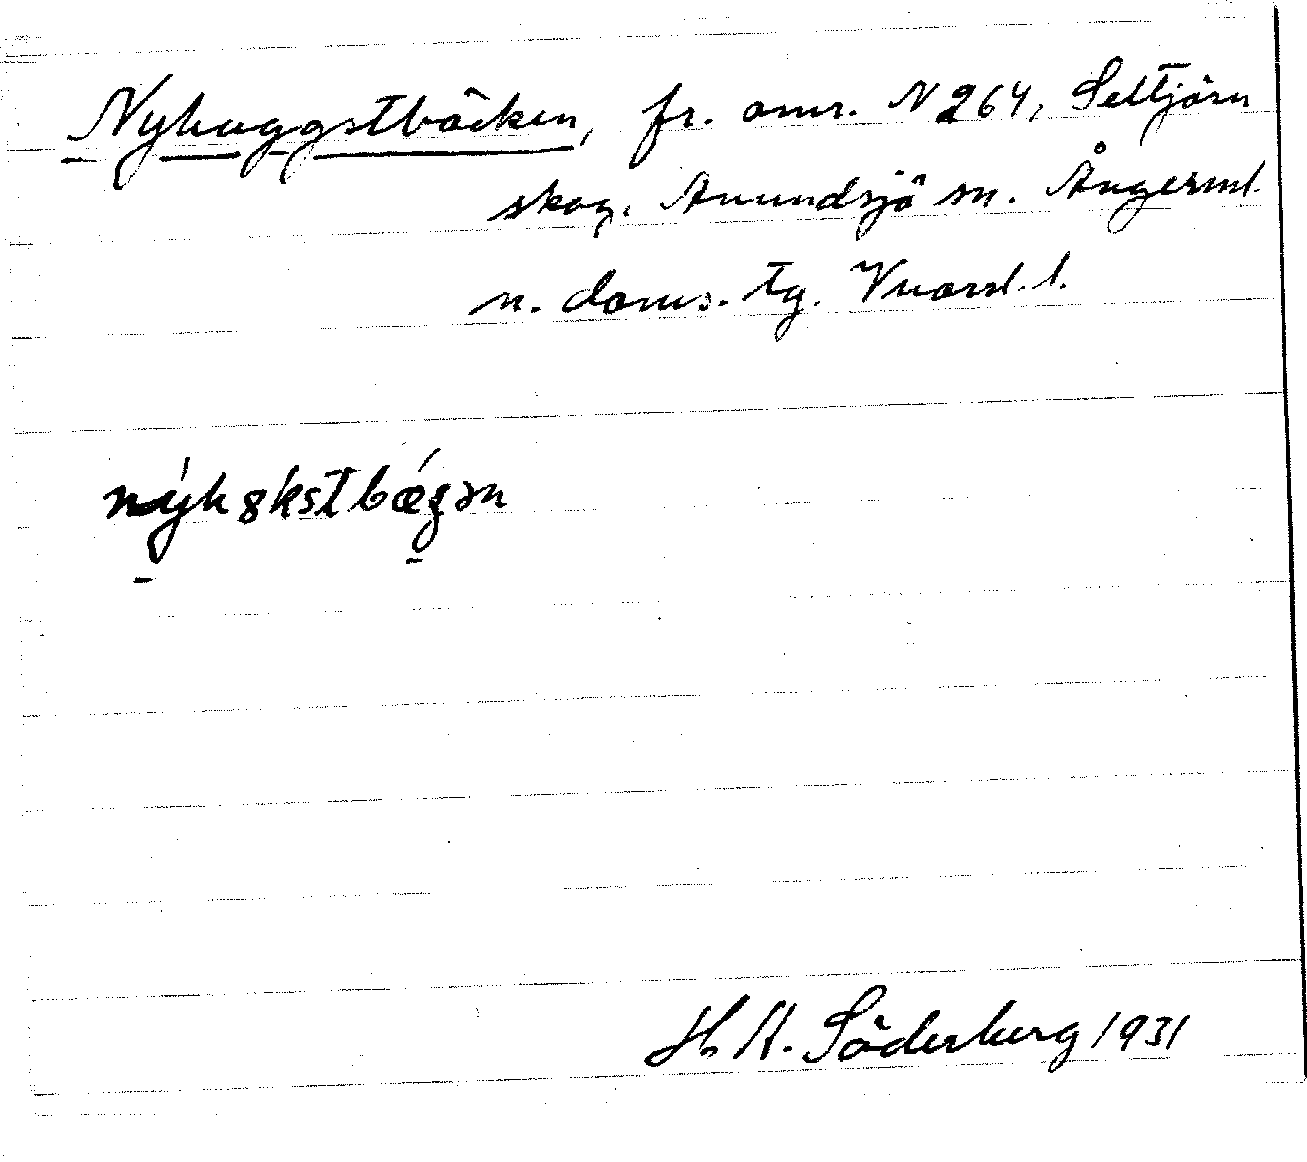 Nyhuggstbäcken, fr. omr. N 264, Seltjärn
skog. Anundsjö sn. Ångerml.
n. doms. tg. Vnorrl. l.
nýh8kstbǽgən
H. K. Söderberg 1931